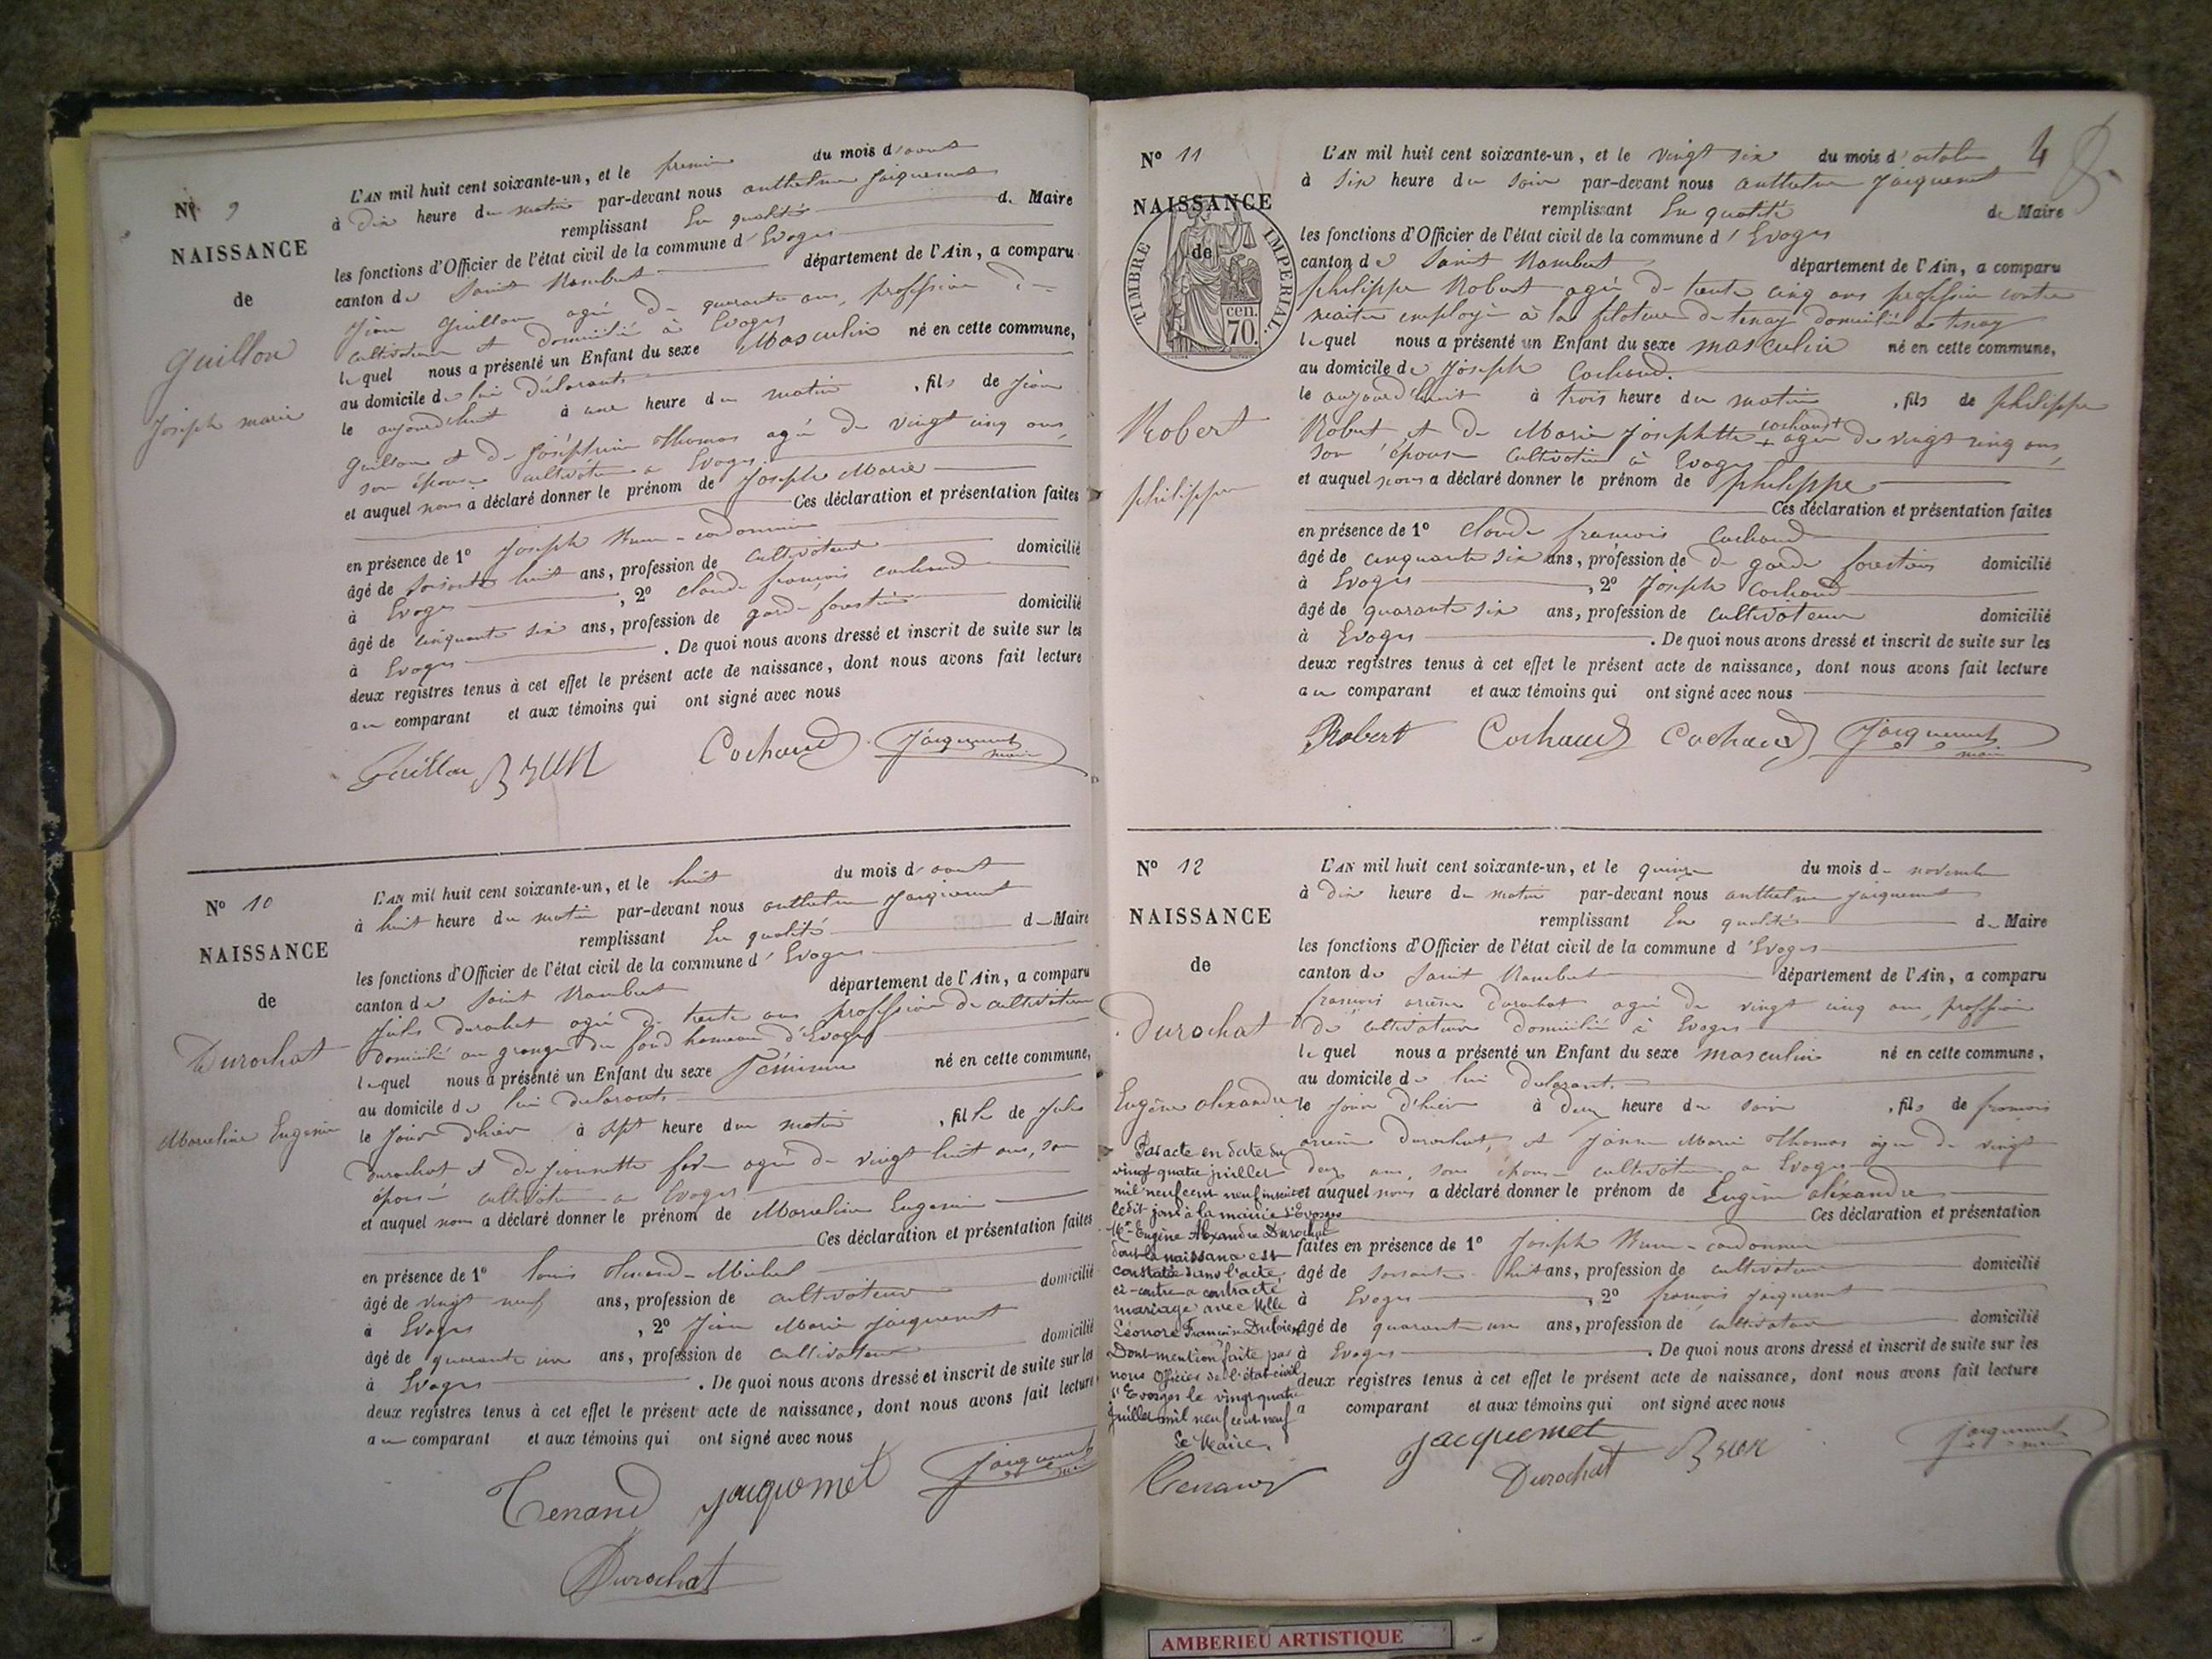 N° 9
NAISSANCE
de
Guillon
Joseph marie
L'AN mil huit cent soixante-un, et le premier du mois d'aout
à Dix heure du matin par-devant nous anthelme Jacquemet
remplissant En qualité de Maire
les fonctions d'Officier de l'état civil de la commune d'Evoges
canton de Saint Rambert département de l'Ain, a comparu
Jean Guillon agé de quarante ans, profession de
cultivateur et domicilié à Evoges
lequel nous a présenté un Enfant du sexe Masculin né en cette commune,
au domicile de lui déclarant
le aujourd'huit à une heure du matin, fils de Jean
Guillon et de Joséphine Thomas agée de vingt cinq ans,
son épouse cultivatrice a Evoges
et auquel nous a déclaré donner le prénom de Joseph Marie
Ces déclaration et présentation faites
en présence de 1° Joseph Brun-cordonnier
âgé de soisante huit ans, profession de cultivateur domicilié
à Evoges, 2° claude françois cochaud
âgé de cinquante six ans, profession de garde forestier domicilié
à Evoges. De quoi nous avons dressé et inscrit de suite sur les
deux registres tenus à cet effet le présent acte de naissance, dont nous avons fait lecture
au comparant et aux témoins qui ont signé avec nous
Guillon Brun Cochaud Jacquemet maire
N° 10
NAISSANCE
de
Durochat
Marceline Eugenie
L'AN mil huit cent soixante-un, et le huit du mois d'aout
à huit heure du matin par-devant nous anthelme Jacquemet
remplissant En qualité de Maire
les fonctions d'Officier de l'état civil de la commune d'Evoges
canton de Saint Rambert département de l'Ain, a comparu
Jules durochat agé de trente ans profession de cultivateur
domicilié au granges du fond hameau d'Evoges
lequel nous a présenté un Enfant du sexe Féminin né en cette commune,
au domicile de lui declarant
le Jour d'hier à sept heure du matin, fille de Jules
durochat et de Jeannette agée de vingt huit ans, son
épouse cultivatrice a Evoges
et auquel nous a déclaré donner le prénom de Marceline Eugenie
Ces déclaration et présentation faites
en présence de 1° Louis Michel
âgé de vingt neuf ans, profession de cultivateur domicilié
à Evoges, 2° Jean Marie Jacquemet
âgé de quarante un ans, profession de cultivateur domicilié
à Evoges. De quoi nous avons dressé et inscrit de suite sur les
deux registres tenus à cet effet le présent acte de naissance, dont nous avons fait lecture
au comparant et aux témoins qui ont signé avec nous
Tenand jacquemet Jacquemet maire
Durochat
4
N° 11
NAISSANCE
de
TIMBRE IMPERIAL
cen. 70.
Robert
philippe
L'AN mil huit cent soixante-un, et le vingt six du mois d'octobre
à Six heure du Soir par-devant nous anthelme Jacquemet
remplissant En qualité de Maire
les fonctions d'Officier de l'état civil de la commune d'Evoges
canton de Saint Rambert département de l'Ain, a comparu
philippe Robert agé de trente cinq ans profession contre
maitre employé à la filature de tenay domicilié a tenay
lequel nous a présenté un Enfant du sexe masculin né en cette commune,
au domicile de Joseph Cochaud.
le aujourd'huit à trois heure du matin, fils de philippe
Robert et de Marie Josephtte cochaud + agée de vingt cinq ans,
son épouse cultivatrice à Evoges
et auquel nous a déclaré donner le prénom de philippe
Ces déclaration et présentation faites
en présence de 1° Claude francois Cochaud
âgé de cinquante six ans, profession de de garde forestiers domicilié
à Evoges, 2° Joseph Cochaud
âgé de quarante six ans, profession de cultivateur domicilié
à Evoges. De quoi nous avons dressé et inscrit de suite sur les
deux registres tenus à cet effet le présent acte de naissance, dont nous avons fait lecture
au comparant et aux témoins qui ont signé avec nous
Robert Cochaud Cochaud Jacquemet maire
N° 12
NAISSANCE
de
Durochat
Eugène alexandre
Par acte en date du
vingt quatre juillet
mil neuf cent neuf inscrit
ledit jour à la mairie d'Evosges
Mr Eugène Alexandre Durochat
dont la naissance est
constatée dans l'acte
ci-contre a contracté
mariage avec Melle
Léonore Françoise
Dont mention faite par
nous Officier de l'état-civil
d'Evosges le vingt quatre
juillet mil neuf cent neuf
Le Maire,
Tenand
L'AN mil huit cent soixante-un, et le quinze du mois de novembre
à Dix heure du matin par-devant nous anthelme Jacquemet
remplissant En qualité de Maire
les fonctions d'Officier de l'état civil de la commune d'Evoges
canton de Saint Rambert département de l'Ain, a comparu
francois durochat agé de vingt cinq ans, proffession
de cultivateur domicilié à Evoges
lequel nous a présenté un Enfant du sexe masculin né en cette commune,
au domicile de lui declarant
le Jour d'hier à deux heure du soir, fils de francois
durochat, et Jeanne Marie Thomas agée de vingt
deux ans, son épouse cultivatrice a Evoges
et auquel nous a déclaré donner le prénom de Eugène alexandre
Ces déclaration et présentation
faites en présence de 1° Joseph Brun-cordonnier
âgé de soisante huit ans, profession de cultivateur domicilié
à Evoges, 2° francois jacquemet
âgé de quarante un ans, profession de cultivateur domicilié
à Evoges. De quoi nous avons dressé et inscrit de suite sur les
deux registres tenus à cet effet le présent acte de naissance, dont nous avons fait lecture
a comparant et aux témoins qui ont signé avec nous
jacquemet Brun Jacquemet maire
Durochat
AMBERIEU ARTISTIQUE